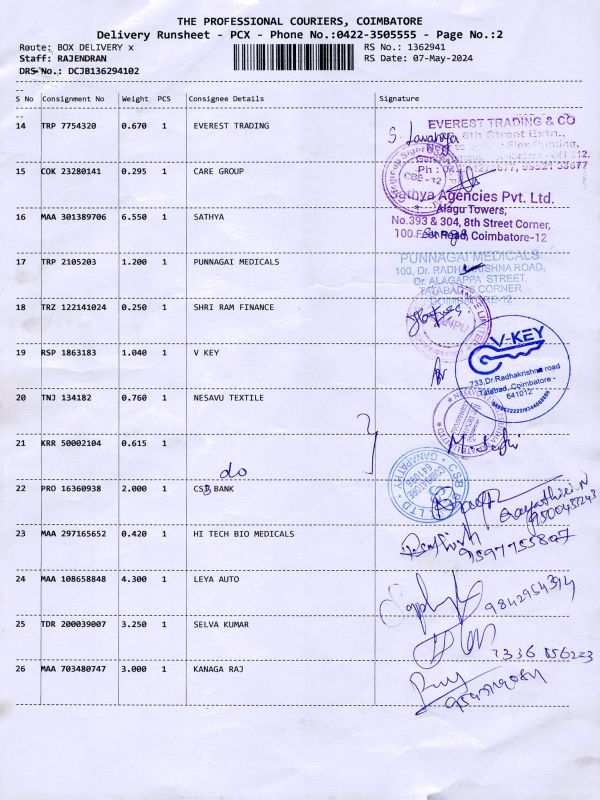 THE PROFESSIONAL COURIERS, COIMBATORE
Delivery Runsheet - PCX - Phone No.:0422-3505555 - Page No.:2
Route: BOX DELIVERY x
RS No.: 1362941
Staff: RAJENDRAN
RS Date: 07-May-2024
DRS No.: DCJB136294102
S No Consignment No Weight PCS Consignee Details Signature
14 TRP 7754320 0.670 1 EVEREST TRADING
S. Lavanya
EVEREST TRADING & CO
8th Street Extn.,
15 COK 23280141 0.295 1 CARE GROUP
CBE-12
16 MAA 301389706 6.550 1 SATHYA
Sathya Agencies Pvt. Ltd.
Alagu Towers,
No.393 & 304, 8th Street Corner,
100 Feet Road, Coimbatore-12
17 TRP 2105203 1.200 1 PUNNAGAI MEDICALS
PUNNAGAI MEDICALS
100, Dr. RADHAKRISHNA ROAD,
Dr. ALAGAPPA STREET,
TATABAD CORNER
COIMBATORE-12
18 TRZ 122141024 0.250 1 SHRI RAM FINANCE
19 RSP 1863183 1.040 1 V KEY
V-KEY
733,Dr.Radhakrishna road
Tatabad, Coimbatore -
641012
20 TNJ 134182 0.760 1 NESAVU TEXTILE
21 KRR 50002104 0.615 1
do
22 PRO 16360938 2.000 1 CSB BANK
CSB BANK LTD
GANAPATHY
COIMBATORE
Gayathiri.N
23 MAA 297165652 0.420 1 HI TECH BIO MEDICALS
9597755807
24 MAA 108658848 4.300 1 LEYA AUTO
9842954394
25 TDR 200039007 3.250 1 SELVA KUMAR
26 MAA 703480747 3.000 1 KANAGA RAJ